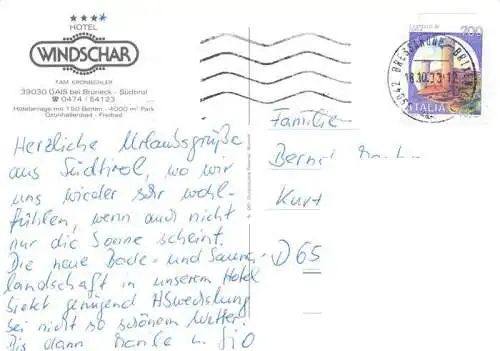 HOTEL
WINDSCHAR
FAM. KRONBICHLER
39030 GAIS bei Bruneck - Südtirol
☎ 0474 / 54123
Hotelanlage mit 150 Betten - 4000 m² Park
Großhallenbad - Freibad
Herzliche Urlaubsgrüße
aus Südtirol, wo wir
uns wieder sehr wohl-
fühlen, wenn auch nicht
nur die Sonne scheint.
Die neue Bade- und Sauna-
landschaft in unserem Hotel
bietet genügend Abwechslung
bei nicht so schönem Wetter.
Bis dann
700
ITALIA
39042 BRESSANONE - BRIXEN
18.10.93-12
Familie
Bernd
Kurt
D 65